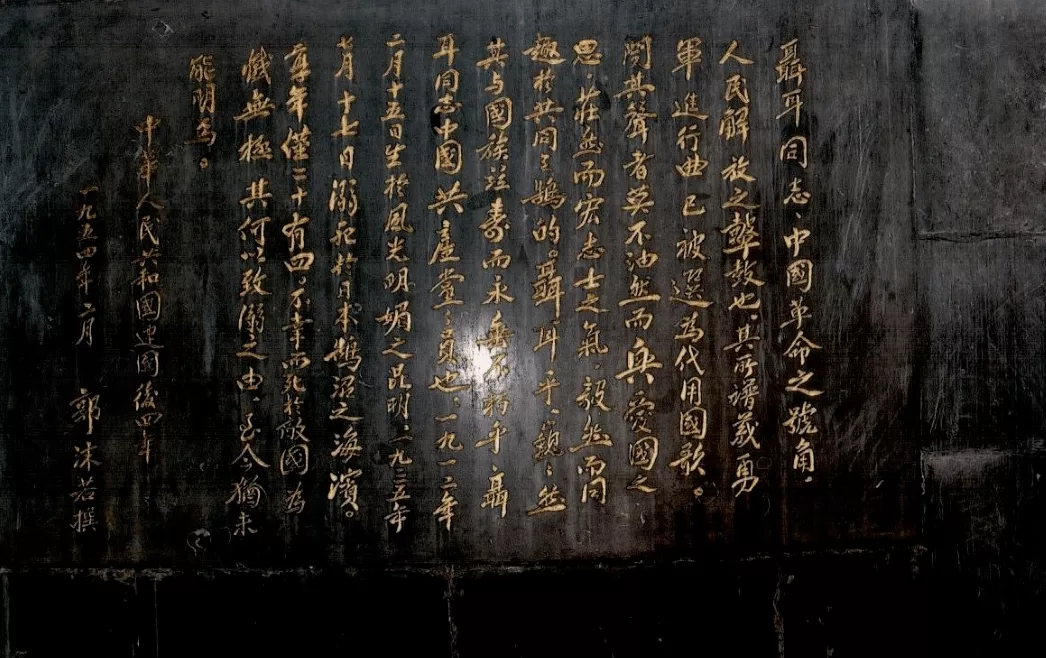 聶耳同志、中國革命之號角，
人民解放之鼙鼓也。其所譜義勇
軍進行曲，已被選為代用國歌。
聞其聲者莫不油然而興愛國之
思，莊然而宏志士之氣，毅然而同
趣於共同之鵠的。聶耳乎，巍〻然
其与國族並壽而永垂不朽乎。聶
耳同志，中國共產黨〻員也，一九一二年
二月十五日生於風光明媚之昆明，一九三五年
七月十七日溺死於日本鵠沼之海濱。
享年僅二十有四。不幸而死於敵國，為
憾無極。其何以致溺之由，至今猶未
能明焉。
中華人民共和國建國後四年
一九五四年二月 郭沫若撰